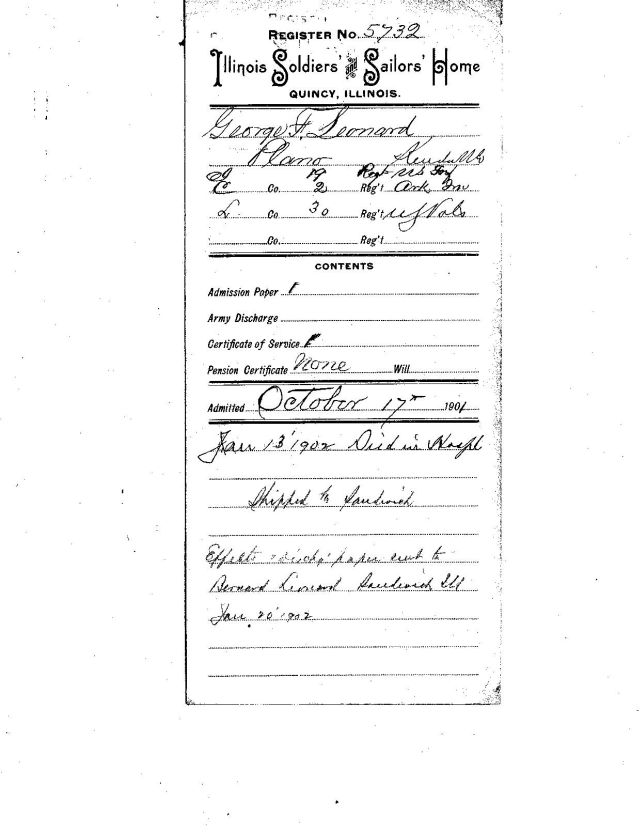 REGISTER NO. 5732
Illinois Soldiers' and Sailors' Home
QUINCY, ILLINOIS.
George F. Leonard
Plano Kendall Co
19 Reg US Inf
E Co. 2 Reg't Ark Inv
L. Co. 30 Reg't US Vols
Co. Reg't
CONTENTS
Admission Paper 1
Army Discharge
Certificate of Service
Pension Certificate None Will
Admitted October 17th 1901
Jan 13' 1902 Died in Hospl
Shipped to Sandwich
Effects & disch' paper sent to
Bernard Leonard Sandwich Ill
Jan 20' 1902